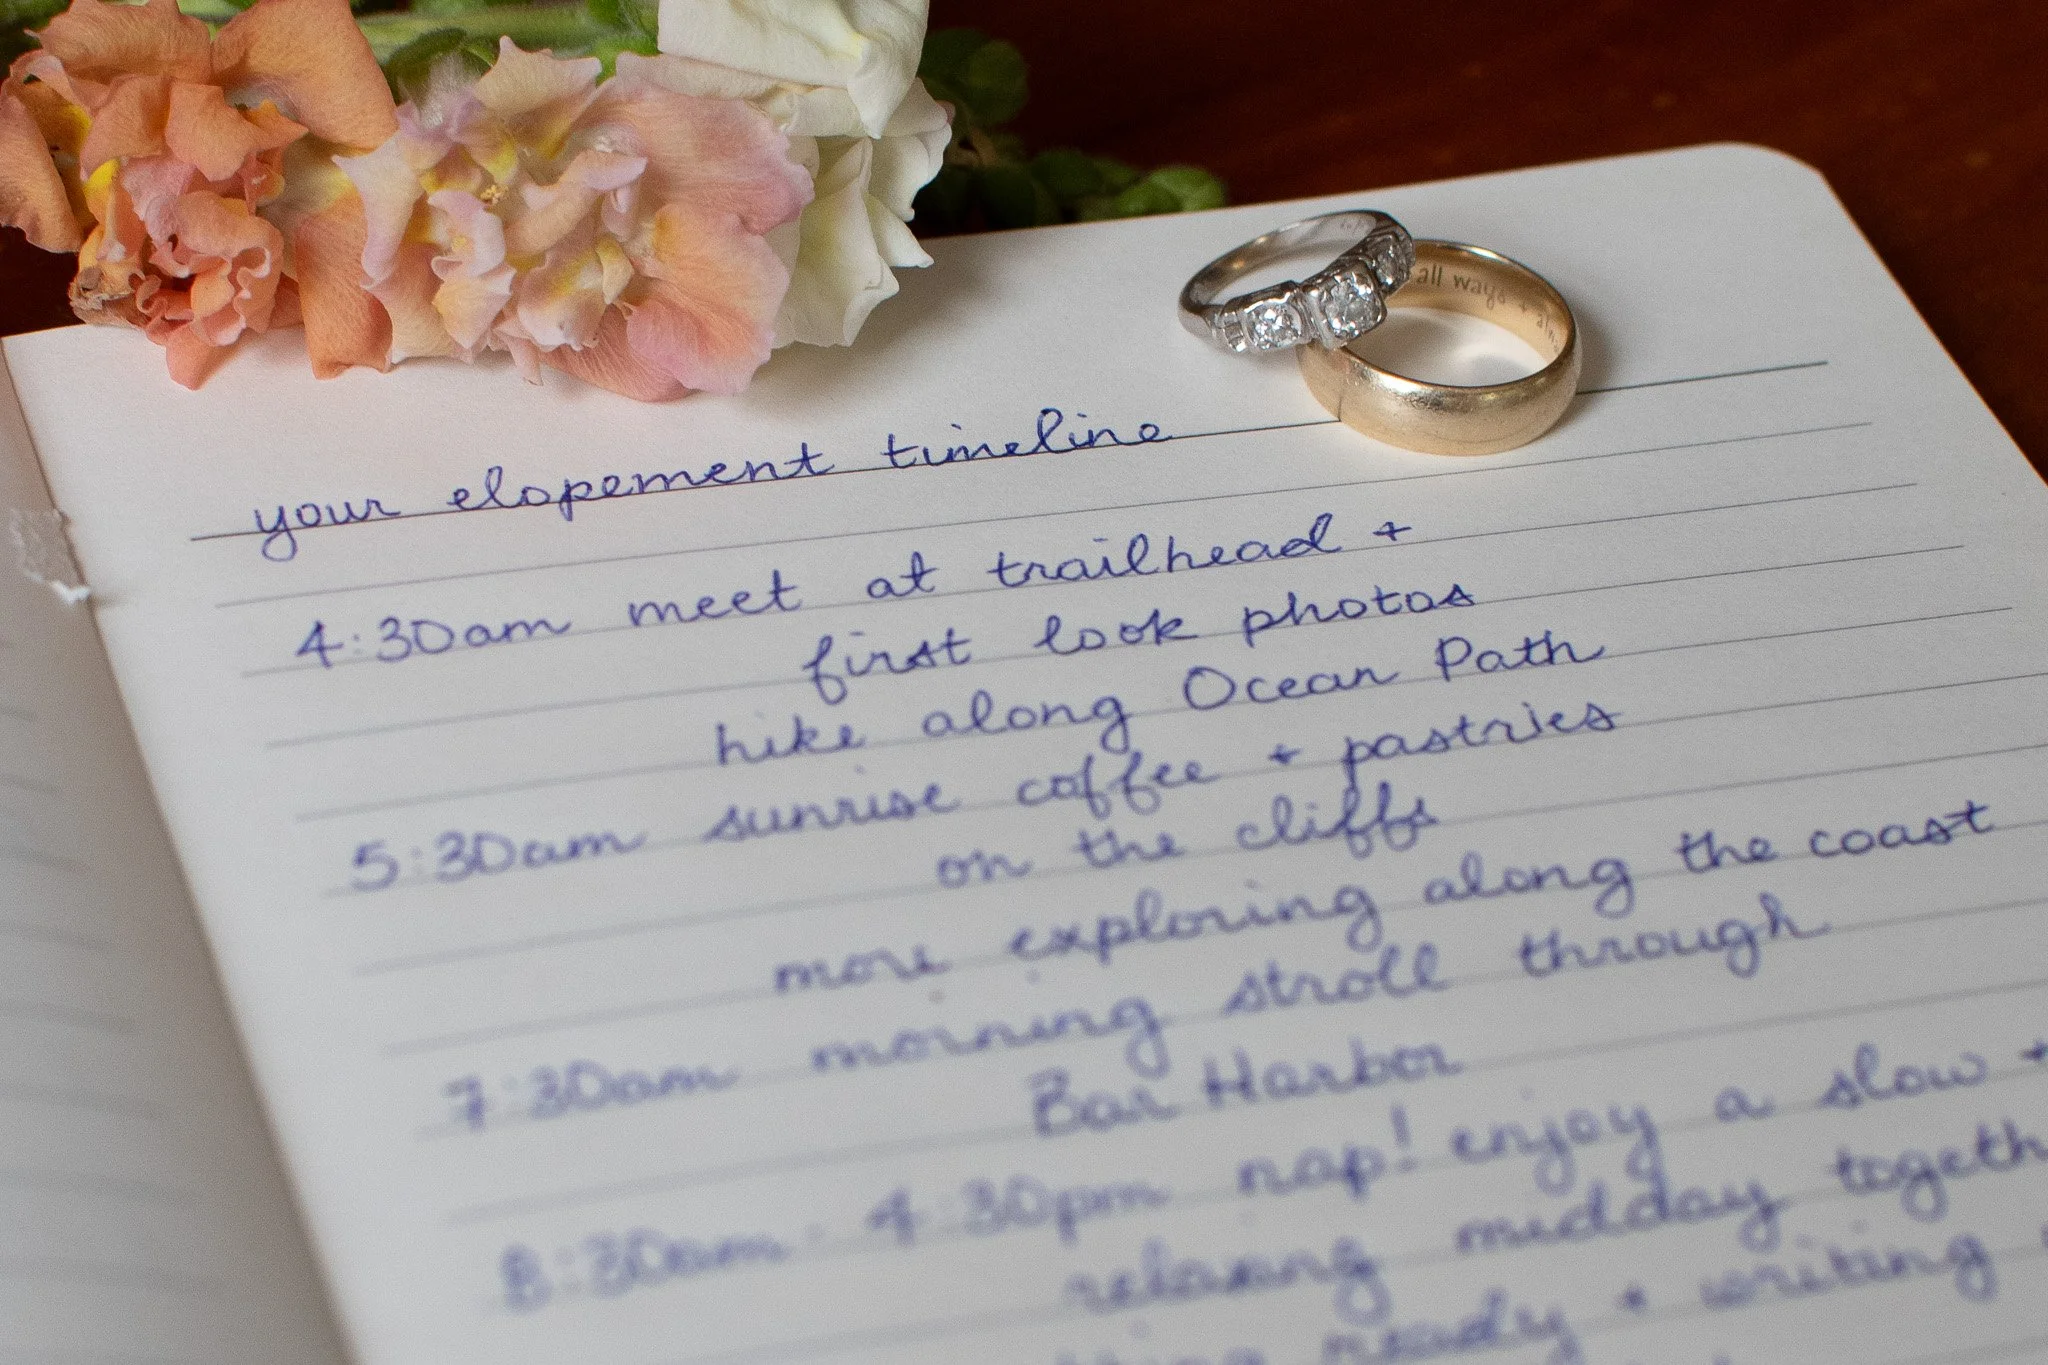 all ways +
your elopement timeline
4:30am meet at trailhead +
first look photos
hike along Ocean Path
5:30am sunrise coffee + pastries
on the cliffs
more exploring along the coast
7:30am morning stroll through
Bar Harbor
8:30am - 4:30pm nap! enjoy a slow +
relaxing midday togeth
ready + writing